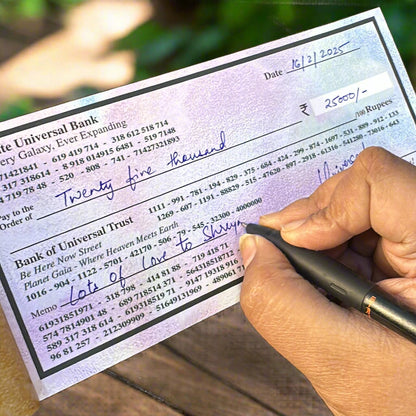 ate Universal Bank
very Galaxy, Ever Expanding
Date 16/2/2025
71421841 - 619 419 714 - 318 612 518 714
317 318614 - 8 918 014915 6481 - 519 7148
4 719 78 48 - 520 - 808 - 741 - 71427321893
₹ 25000/-
Pay to the
Order of Twenty five thousand /100 Rupees
1111 - 991 - 781 - 194 - 829 - 375 - 684 - 424 - 299 - 874 - 1697 - 531 - 889 - 912 - 133
1269 - 607 - 1191 - 88829 - 515 - 47620 - 897 - 2918 - 61310 - 541280 - 73016 - 643
Bank of Universal Trust
Be Here Now Street
Planet Gaia - Where Heaven Meets Earth
1016 - 904 - 1122 - 5701 - 42170 - 506 - 79 - 545 - 32300 - 4000000
Memo Lots of Love to
61931851971 - 318 798 - 414 81 88 - 719 418 71
574 7814901 48 - 689 718514 371 - 564318518712
589 317 318 614 - 619318519 71 - 9147 19318 919
96 81 257 - 212309909 - 51649131969 - 489061